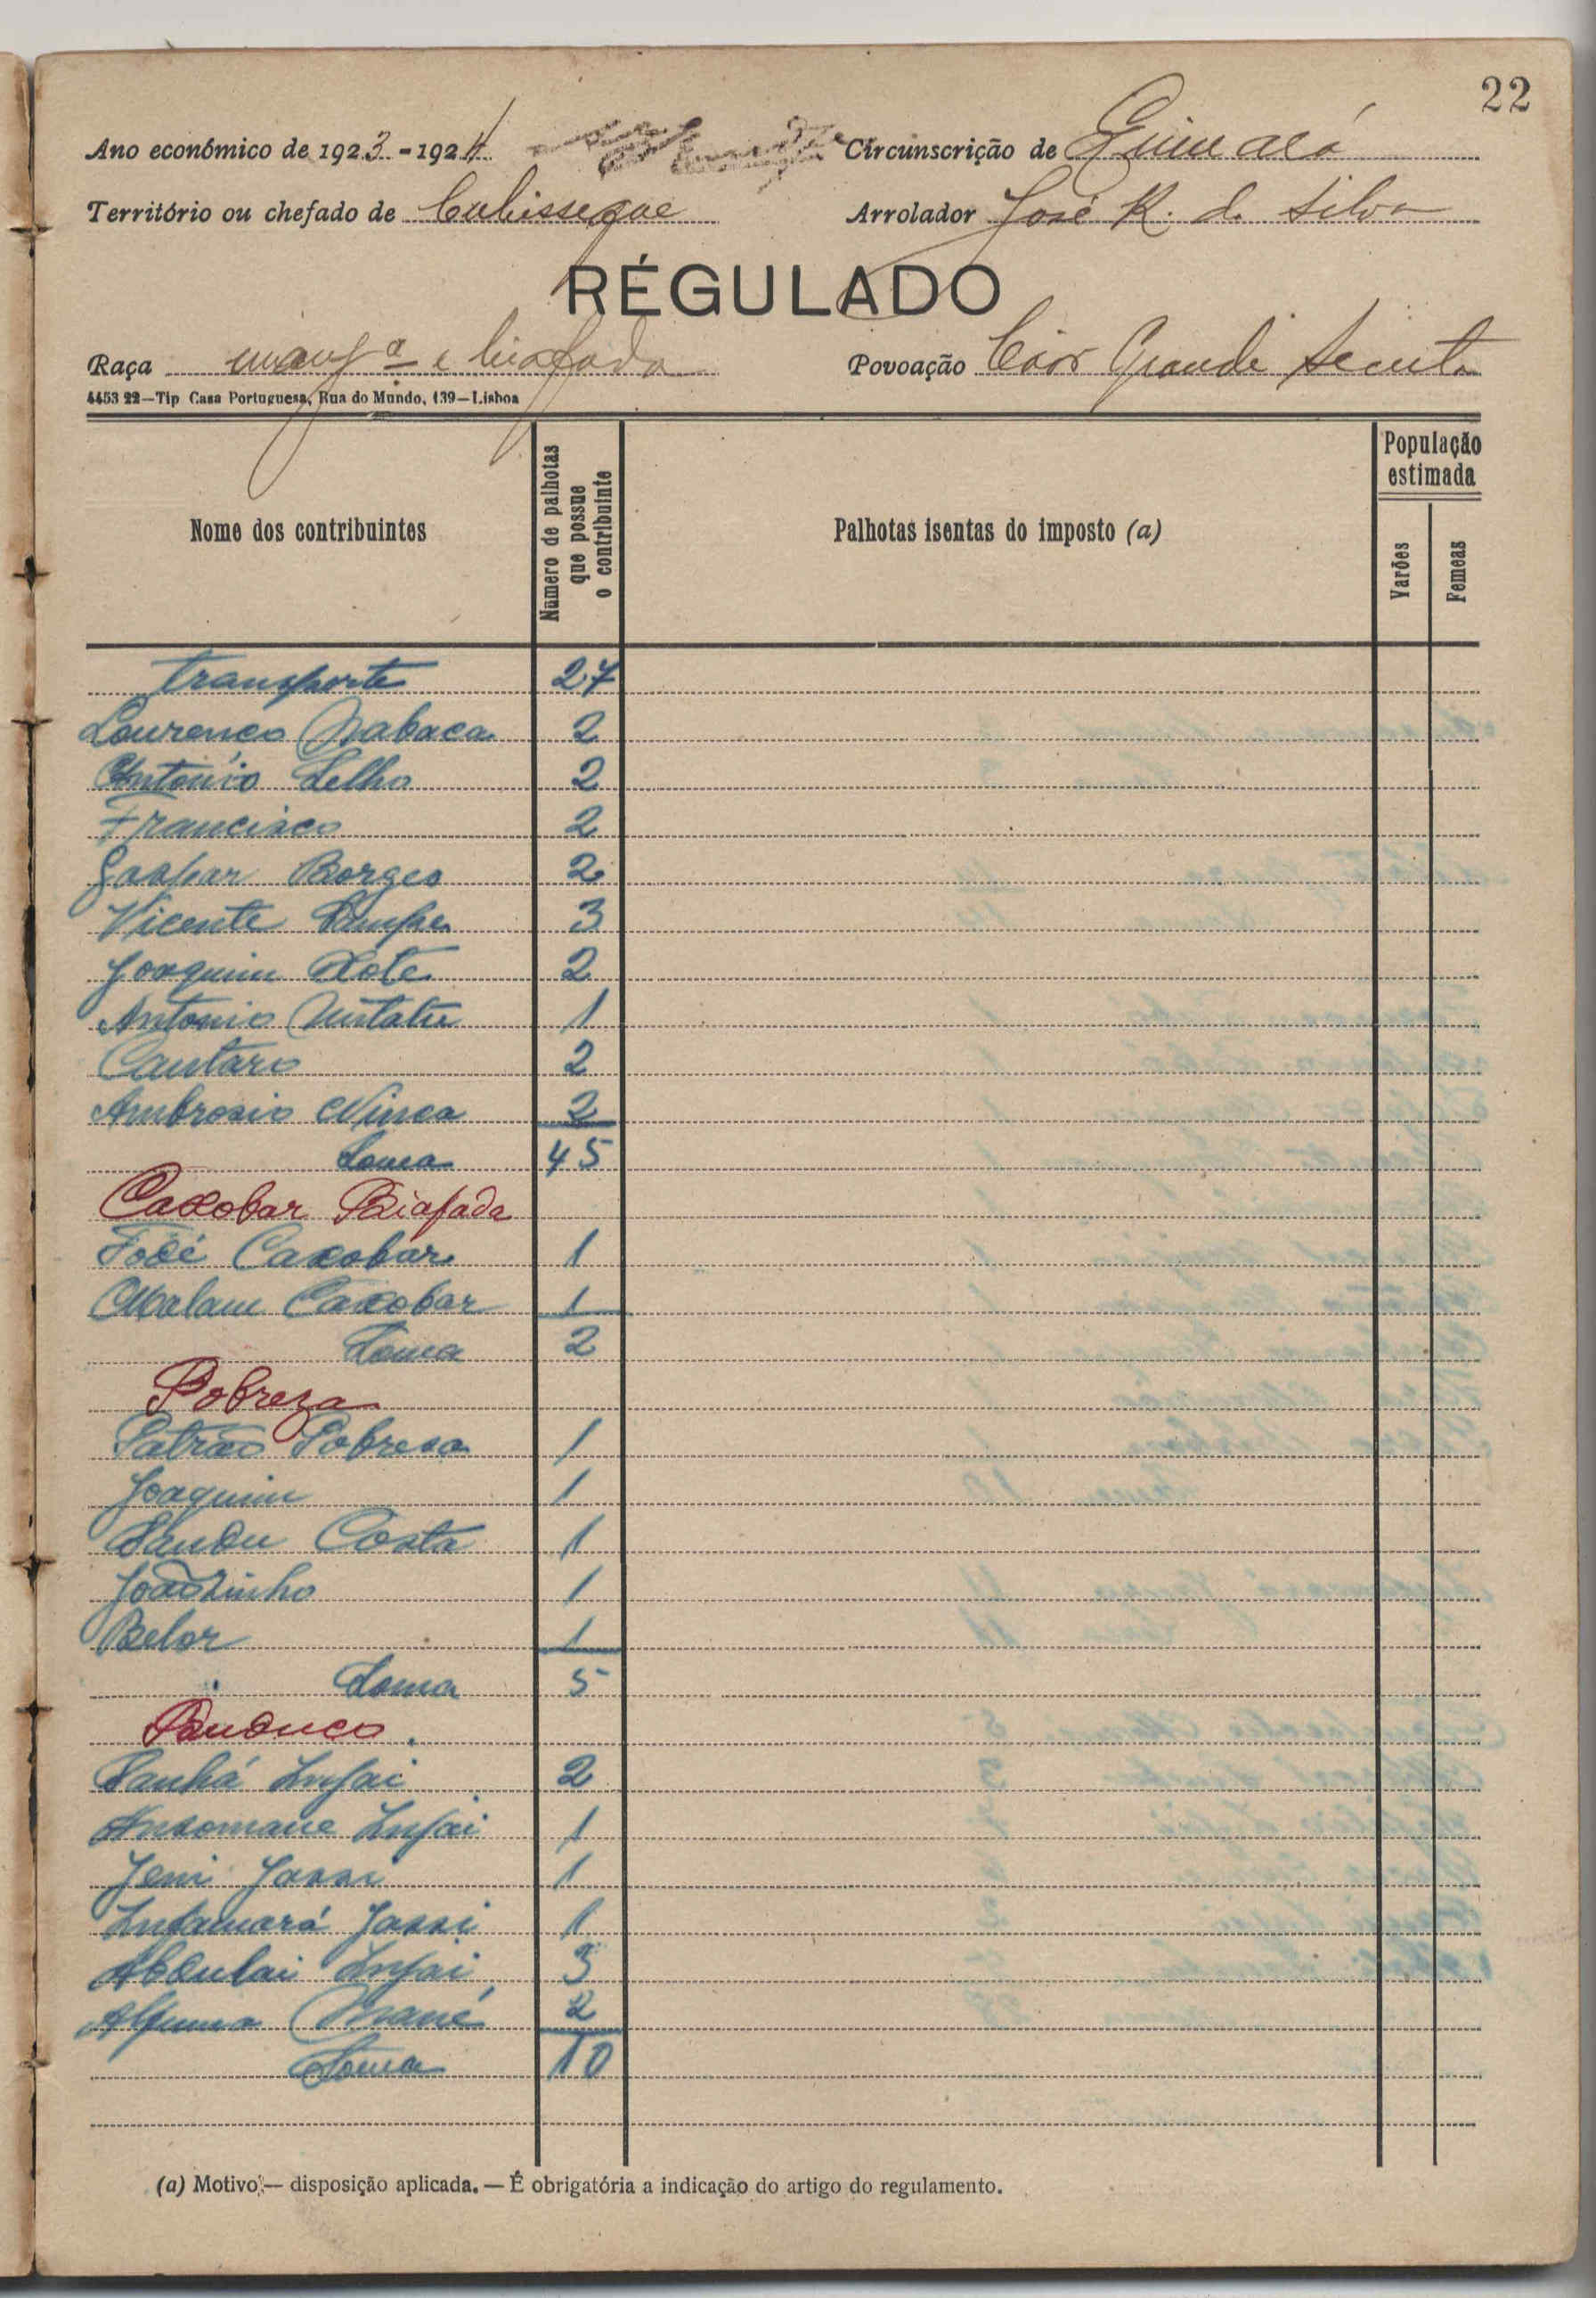 22
Ano económico de 1923-1924
Circunscrição de
Território ou chefado de Cubisseque
Arrolador José R. d. Silva
RÉGULADO
Raça manj.ª e biafada
Povoação Grande
4453 22—Tip Casa Portuguesa, Rua do Mundo, 139—Lisboa
Nome dos contribuintes
Número de palhotas que possue o contribuinte
Palhotas isentas do imposto (a)
População estimada
Varões
Femeas
Transporte 27
Lourenço Nabaca 2
António Lelho 2
Francisco 2
Gaspar Borges 2
Vicente 3
Joaquim 2
Antonio 1
Cantaro 2
Ambrosio 2
Soma 45
Caxobar Biafada
Fodé Caxobar 1
Malam Caxobar 1
Soma 2
Pobreza
Patrão Pobresa 1
Joaquim 1
Sandu Costa 1
Joãozinho 1
Belor 1
Soma 5
Banduco
Sanhá Infai 2
Ansomane Infai 1
Jeni Jassi 1
Infamará Jassi 1
Abdulai Infai 3
Mané 2
Soma 10
(a) Motivo — disposição aplicada. — É obrigatória a indicação do artigo do regulamento.